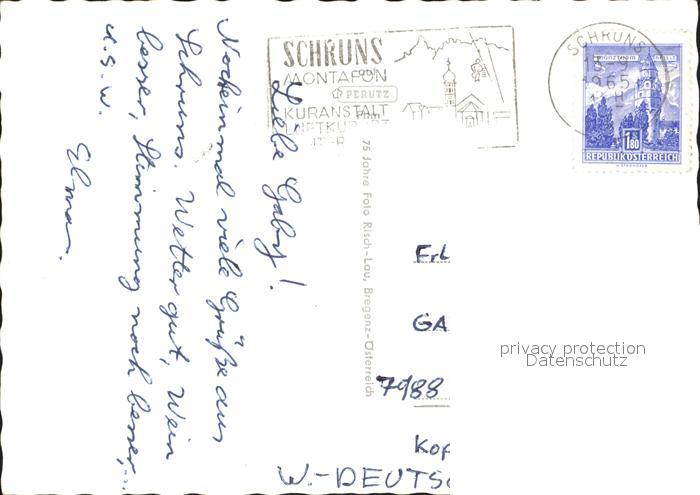 Liebe Gaby!
Nocheinmal viele Grüße aus
Schruns. Wetter gut, Wein
besser, Stimmung noch besser,
u.s.w.
Elmar.
SCHRUNS
MONTAFON
PERUTZ
Film
KURANSTALT
LUFTKURORT
SCHRUNS
1965
1.80
REPUBLIK ÖSTERREICH
75 Jahre Foto Risch-Lau, Bregenz-Österreich
Frl
GA
7988
Kop
W.-DEUTSC
privacy protection
Datenschutz